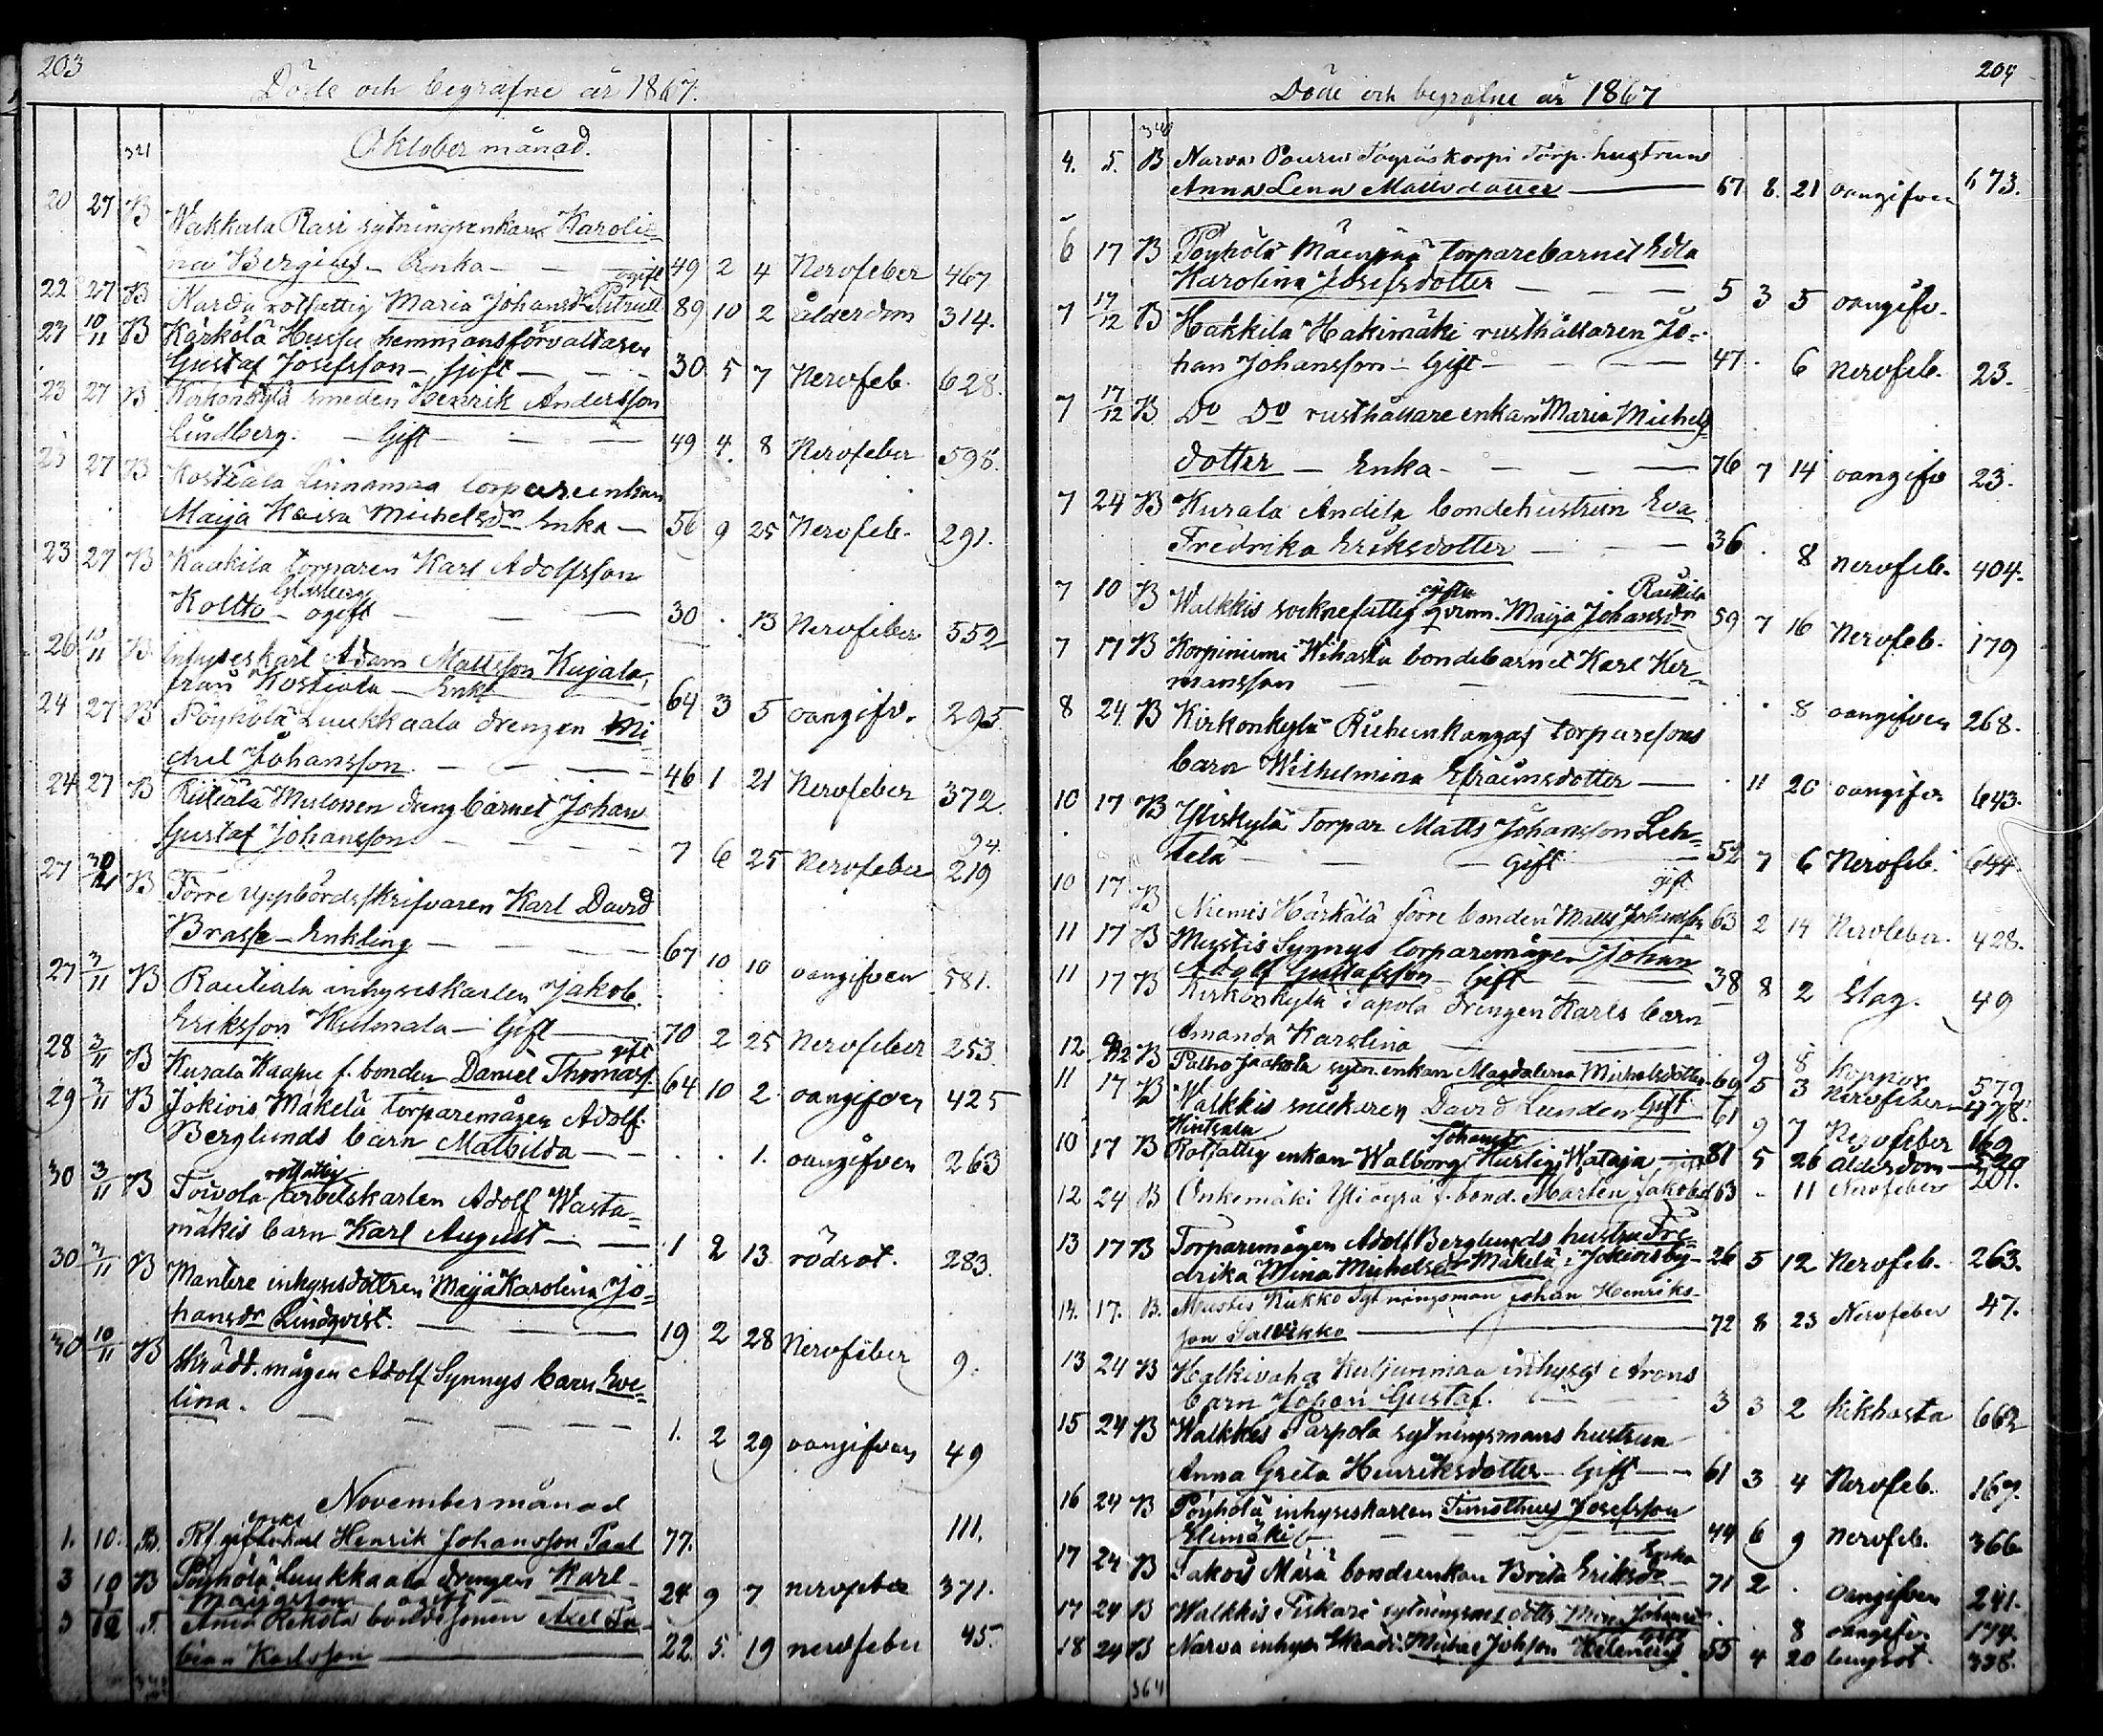 203
Döde och begrafne år 1867.
321 Oktober månad.
20 27 B Wakkala Rasi sytningsenkan Karoli-
na Bergius - Enka - 49 2 4 Nervfeber 467
ogift
22 27 B Narva rotfattig Maria Johansdr 89 10 2 ålderdom 314.
27 10/11 B Kärkölä Heussu hemmansförvaltaren
Gustaf Josefsson - Gift - 30 5 7 Nervfeb. 628.
23 27 B Kirkonkylä smeden Henrik Andersson
Lindberg. - Gift - 49 4. 8 Nervfeber 598.
23 27 B Kostiala Linnamaa torpareenkan
Maija Kaisa Michelsdn Enka - 56 9 25 Nervfeb. 291.
23 27 B Kaakila torparen Karl Adolfsson
Kollto - ogift 30 . 13 Nervfeber 552
26 10/11 B Inhyseskarl Adam Mattsson Kujala,
från Kostiala - Enkl 64 3 5 oangifv. 295
24 27 B Pöyhölä Luukkaala drengen Mi-
chel Johansson 46 1 21 Nervfeber 372.
24 27 B Riitiälä Mustonen drengbarnet Johan
Gustaf Johansson 7 6 25 Nervfeber 94. 219
27 B Förre uppbördsskrifvaren Karl David
Brasse - Enkling 67 10 10 oangifven 581.
27 3/11 B Rautiala inhyseskarlen Jakob
Eriksson Huhmala - Gift 70 2 25 Nervfeber 253
gift
28 3/11 B Kurala Kaapu f. bonden Daniel Thomass. 64 10 2 oangifven 425
29 3/11 B Jokiois Mäkelä torparemågen Adolf
Berglunds barn Mathilda - . . 1. oangifven 263
rotfattig
30 3/11 B Toivola arbetskarlen Adolf Wasta-
mäkis barn Karl August - 1 2 13. rödsot. 283.
30 3/11 B Mantere inhysesdottren Maija Karolina Jo-
hansdr Lindqvist. 19 2 28 Nervfeber 9.
30 10/11 B Skrädd. mågen Adolf Synnys barn Eve-
lina. 1. 2 29 oangifven 49
November månad
1. 10. B. Rf. Henrik Johansson Paal 77. 111.
3 10 B Pöyhölä Luukkaala drengen Karl
24 9 7 nervfeber 371.
3 1/12 B. Ania Rekola bondesonen Axel Fa-
bian Karlsson 22 5. 19 nervfeber 45.
204
Döde och begrafne år 1867
4. 5. B Narva Pouru Torp. hustrun
Anna Lena Mattsdotter 67 8. 21 oangifven 673.
6 17 B Pöyhölä Mäenpää torparebarnet Edla
Karolina Josefsdotter 5 3 5 oangifv.
7 17/12 B Hakkila Hakimäki rusthållaren Jo-
han Johansson - Gift - 47 . 6 Nervfeb. 23.
7 17/12 B Do Do rusthållareenkan Maria Michels-
dotter - Enka - 76 7 14 oangifv 23.
7 24 B Kurala Andila bondehustrun Eva
Fredrika Eriksdotter 36 . 8 nervfeb. 404.
gifta Raukila
7 10 B Walkkis socknefattig qvinn. Maija Johansdr 59 7 16 Nervfeb. 179
7 17 B Korpiniemi Wihastu bondebarnet Karl Her-
mansson . . 8 oangifven 268.
8 24 B Kirkonkylä Riihunkangas torparesons
barn Wilhelmina Efraimsdotter . 11 20 oangifv. 643.
10 17 B Yliskylä Torpar Matts Johansson Leh-
telä - Gift 52 7 6 Nervfeb. 644.
gift
10 17 B Niemis Härkälä förre bonden Matts Johansson 63 2 14 Nervfeber. 428.
11 17 B Mustis Synnys torparemågen Johan
Adolf Gustafsson - Gift 38 8 2 Slag. 49
11 17 B Kirkonkylä Tapola drengen Karls barn
Amanda Karolina . 9 8 Koppor 579
12 B Palho Jaakola sytn. enkan Magdalena Michelsdotter 69 5 3 Nervfeber 478.
11 17 B Walkkis snickaren David Lunden Gift 61 9 7 Nervfeber 169
Johansdr
10 17 B Rotfattig enkan Walborg Hurtig Wataja 81 5 26 Ålderdom
12 24 B Onkemäki Yliögrä f. bond. Marten Jakobs 63 - 11 Nervfeber 201.
13 17 B Torparemågen Adolf Berglunds hustru Fre-
drika Mina Michelsdr Mäkelä i Jokioisby - 26 5 12 Nervfeb. 263.
14. 17. B. Mustis Kukko Sytningsman Johan Henriks-
son Salvikko 72 8 23 Nervfeber 47.
13 24 B Halkivaha Kuljunmaa inhyses Arons
barn Johan Gustaf. 3 3 2 Kikhosta 662
15 24 B Walkkis Parpola sytningsmans hustrun
Anna Greta Henriksdotter - Gift - 61 3 4 Nervfeb. 167.
16 24 B Pöyhölä inhyseskarlen Timotheus Josefsson
Elimäki 44 6 9 nervfeb. 366
Enka
17 24 B Sakois Märä bondeenkan Brita Eriksdr 71 2 . oangifven 241.
17 24 B Walkkis Tiskari sytningsm dott. Mina Johansdr . . 8 oangifv. 174.
18 24 B Narva inhyses Skrädd. Michel Johsson Helenius 55 4 20 lungsot. 338.
364